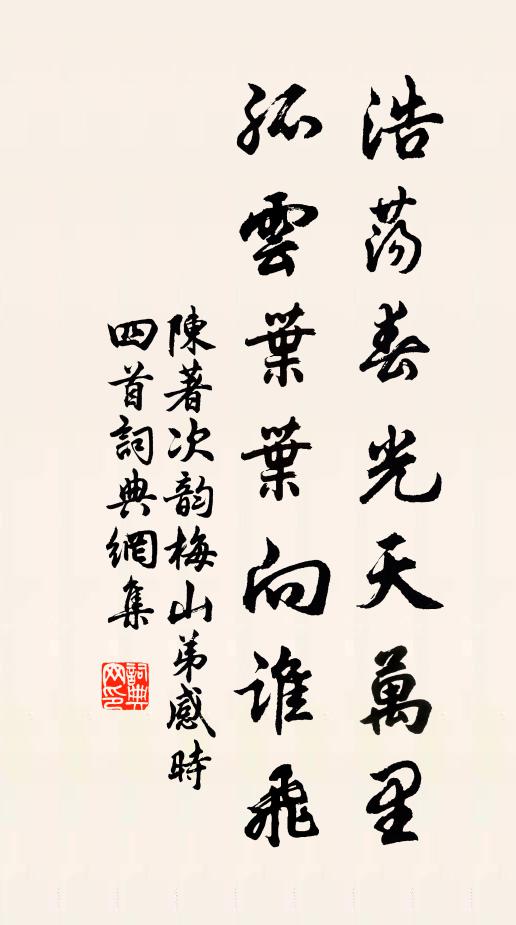 浩蕩春光天萬里
孤雲葉葉向誰飛
陳著次韵梅山弟感時
四首詞典網集
詞典网印